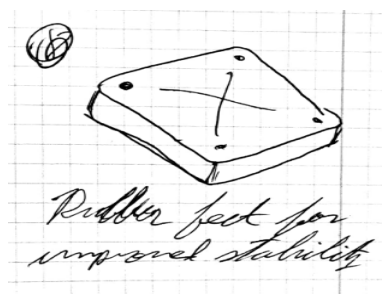 Rubber feet for
improved stability